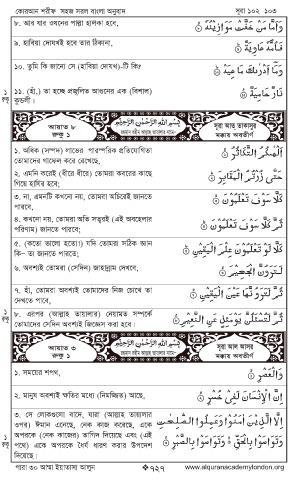 কোরআন শরীফ সহজ সরল বাংলা অনুবাদ
সূরা ১০২ ১০৩
৮. আর যার ওযনের পাল্লা হালকা হবে,
وَأَمَّا مَنْ خَفَّتْ مَوَازِينُهُ ۝
৯. হাবিয়া দোযখই হবে তার ঠিকানা,
فَأُمُّهُ هَاوِيَةٌ ۝
১০. তুমি কি জানো সে (হাবিয়া দোযখ)-টি কি?
وَمَا أَدْرٰىكَ مَا هِيَهْ ۝
১১. (হাঁ,) তা হচ্ছে প্রজ্বলিত আগুনের এক (বিশাল)
কুন্ডলী।
نَارٌ حَامِيَةٌ ۝
১
রুকু
আয়াত ৮
রুকু ১
بِسْمِ اللهِ الرَّحْمٰنِ الرَّحِيْمِ
রহমান রহীম আল্লাহ তায়ালার নামে-
সূরা আত্ তাকাসুর
মক্কায় অবতীর্ণ
১. অধিক (সম্পদ) লাভের পারস্পরিক প্রতিযোগিতা
তোমাদের গাফেল করে রেখেছে,
أَلْهٰكُمُ التَّكَاثُرُ ۝
২. এমনি করেই (ধীরে ধীরে) তোমরা কবরের কাছে
গিয়ে হাযির হবে;
حَتّٰى زُرْتُمُ الْمَقَابِرَ ۝
৩. না, এমনটি কখনো নয়, তোমরা অচিরেই জানতে
পারবে,
كَلَّا سَوْفَ تَعْلَمُوْنَ ۝
৪. কখনো নয়, তোমরা অতি সত্বরই (এই অবহেলার
পরিণাম) জানতে পারবে;
ثُمَّ كَلَّا سَوْفَ تَعْلَمُوْنَ ۝
৫. (কতো ভালো হতো!) যদি তোমরা সঠিক জ্ঞান
কি- তা জানতে পারতে;
كَلَّا لَوْ تَعْلَمُوْنَ عِلْمَ الْيَقِيْنِ ۝
৬. অবশ্যই তোমরা (সেদিন) জাহান্নাম দেখবে,
لَتَرَوُنَّ الْجَحِيْمَ ۝
৭. হাঁ, তোমরা অবশ্যই তোমাদের নিজ চোখে তা
দেখতে পাবে,
ثُمَّ لَتَرَوُنَّهَا عَيْنَ الْيَقِيْنِ ۝
৮. এরপর (আল্লাহ তায়ালার) নেয়ামত সম্পর্কে
তোমাদের সেদিন অবশ্যই জিজ্ঞেস করা হবে।
ثُمَّ لَتُسْـَٔلُنَّ يَوْمَئِذٍ عَنِ النَّعِيْمِ ۝
১
রুকু
আয়াত ৩
রুকু ১
بِسْمِ اللهِ الرَّحْمٰنِ الرَّحِيْمِ
রহমান রহীম আল্লাহ তায়ালার নামে-
সূরা আল আসর
মক্কায় অবতীর্ণ
১. সময়ের শপথ,
وَالْعَصْرِ ۝
২. মানুষ অবশ্যই ক্ষতির মধ্যে (নিমজ্জিত) আছে,
إِنَّ الْإِنْسَانَ لَفِيْ خُسْرٍ ۝
৩. সে লোকগুলো বাদে, যারা (আল্লাহ তায়ালার
ওপর) ঈমান এনেছে, নেক কাজ করেছে, একে
অপরকে (নেক কাজের) তাগিদ দিয়েছে এবং (এই
পথে) একে অপরকে ধৈর্য ধারণ করার উপদেশ
দিয়েছে।
إِلَّا الَّذِيْنَ اٰمَنُوْا وَعَمِلُوا الصّٰلِحٰتِ
وَتَوَاصَوْا بِالْحَقِّ ۙ وَتَوَاصَوْا بِالصَّبْرِ ۝
১
রুকু
পারা ৩০ আম্মা ইয়াতাসা আলুন
৭২৭
www.alquranacademylondon.org